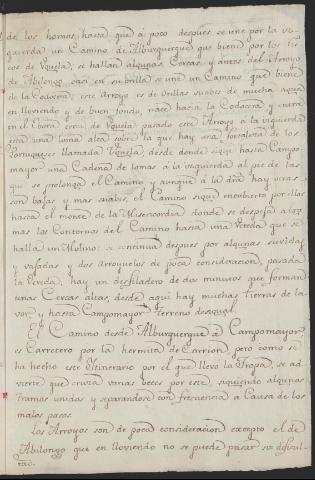 de los hornos, hasta que a poco despues se une por la iz-
quierda un Camino de Alburquerque que biene por los ri-
cos de Vguela, se hallan algunas Cercas, y antes del Arroyo
de Abilongo casi en su orilla se une un Camino que biene
de la Codocera, este Arroyo es de orillas suabes de mucha agua
en lloviendo, y de buen fondo, nace hacia la Codocera y entra
en el Ebora cerca de Vguela, pasado este Arroyo a la izquierda
esta una loma alta sobre la que hay una fortaleza de los
Portugueses llamada Vguela, desde donde sigue hasta Campo-
mayor una Cadena de lomas á la izquierda al pie de las
que se prolonga el Camino y aunque á la dra hay otras
son bajas y mas suabes, el Camino sigue encubierto por ellas
hasta el monte de la Misericordia donde se despeja algo
mas los Contornos del Camino hasta una Vereda que se
halla un Molino: se continua despues por algunas suvidas
y vajadas y dos Arroyuelos de poca consideracion, pasada
la Vereda, hay un desfiladero de dos minutos que forman
unas Cercas altas, desde aqui hay muchas tierras de la-
vor, y hasta Campomayor terreno desigual.
El Camino desde Alburquerque á Campomayor
es Carretero por la hermita de Carrion, pero como se
ha hecho este Itinerario por el que llevó la Tropa, se ad-
vierte que cruza varias beces por este, siguiendo algunos
tramos unidos y separandose con frecuencia a Causa de los
malos pasos.
Los Arroyos son de poca consideracion excepto el de
Abilongo que en lloviendo no se puede pasar sin dificul-
tad.